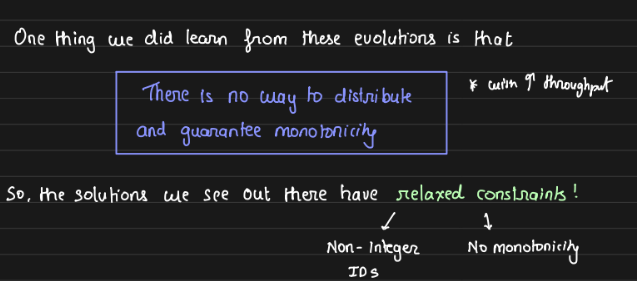 One thing we did learn from these evolutions is that
There is no way to distribute
and guarantee monotonicity
* with ↑ throughput
So, the solutions we see out there have relaxed constraints!
Non-Integer
IDs
No monotonicity